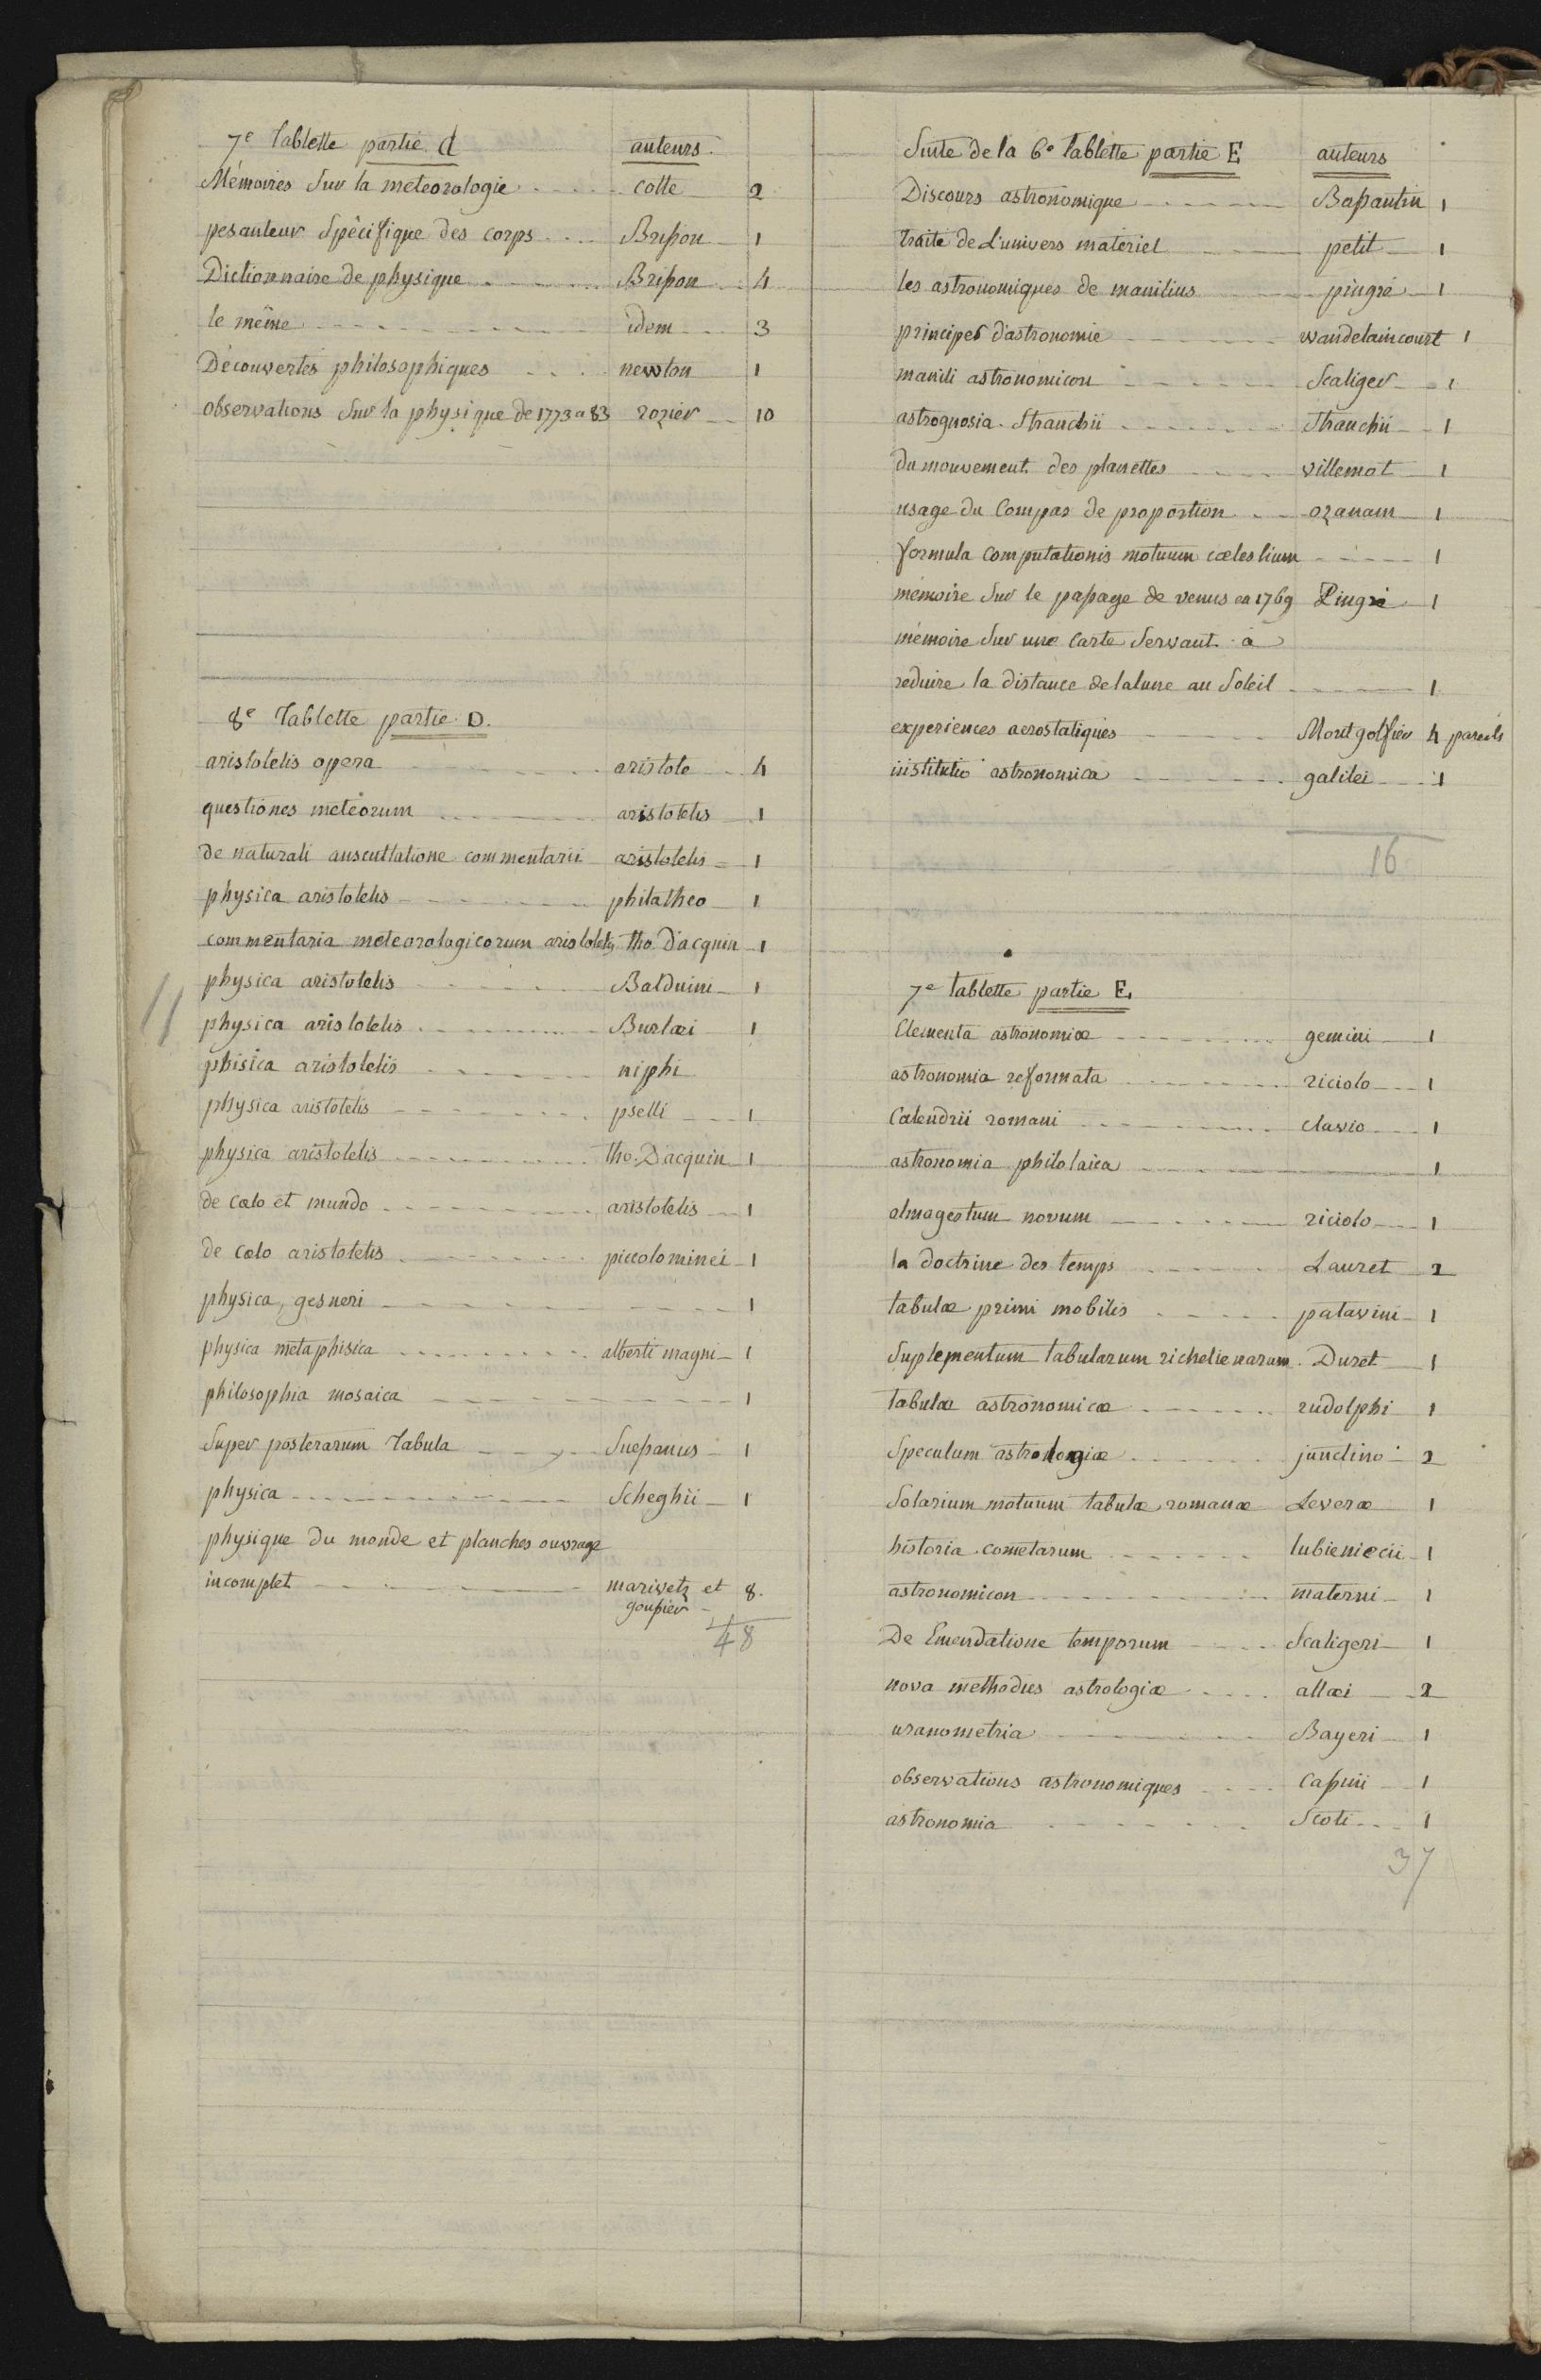 7e Tablette partie d auteurs.
Mémoires Sur la meteorologie colte 2
pesanteur Spécifique des corps Brisson 1
Dictionnaire de physique Brisson 4
le même idem 3
Découvertes philosophiques newton 1
observations Sur la physique de 1773 a 83 rozier 10
8e Tablette partie D.
aristotelis opera aristote 4
questiones meteorum aristotelis 1
de naturali auscultatione commentarii aristotelis 1
physica aristotelis philatheo 1
commentaria meteorologicorum aristotelis tho. D'acquin 1
physica aristotelis Balduini 1
physica aristotelis Burlaei 1
phisica aristotelis niphi
physica aristotelis pselli 1
physica aristotelis tho. D'acquin 1
de cœlo et mundo aristotelis 1
de cœlo aristotelis piccolominei 1
physica, gesneri 1
physica metaphisica alberti magni 1
philosophia mosaica 1
Super posterarum Tabula Suessanus 1
physica Scheghii 1
physique du monde et planches ouvrage
incomplet marivetz et 8.
goussier
48
Suite de la 6e tablette partie E auteurs
Discours astronomique Bassantin 1
traité de L'univers matériel petit 1
les astronomiques de manilius pingré 1
principes d'astronomie wandelaincourt 1
manili astronomicon Scaliger 1
astrognosia Strauchii Strauchii 1
du mouvement des planettes villemot 1
usage du Compas de proportion ozanam 1
formula computationis motuum cœlestium 1
mémoire Sur le passage de venus en 1769 Pingré 1
mémoire Sur une Carte Servant à
réduire la distance de la lune au Soleil 1
experiences aerostatiques Montgolfier 4 pareils
institutio astronomica galilei 1
16
7e tablette partie E.
Elementa astronomiæ gemini 1
astronomia reformata riciolo 1
Calendrii romani clavio 1
astronomia philolaica 1
almagestum novum riciolo 1
la doctrine des temps Lauret 2
tabulæ primi mobilis patavini 1
Suplementum tabularum richelienarum Duret 1
tabulæ astronomicæ rudolphi 1
Speculum astrologiæ junctino 2
Solarium motuum tabulæ romanæ Leveræ 1
historia cometarum lubieniecii 1
astronomicon materni 1
De Emendatione temporum Scaligeri 1
nova methodus astrologiæ allæi 2
uranometria Bayeri 1
observations astronomiques Cassini 1
astronomia Scoti 1
37